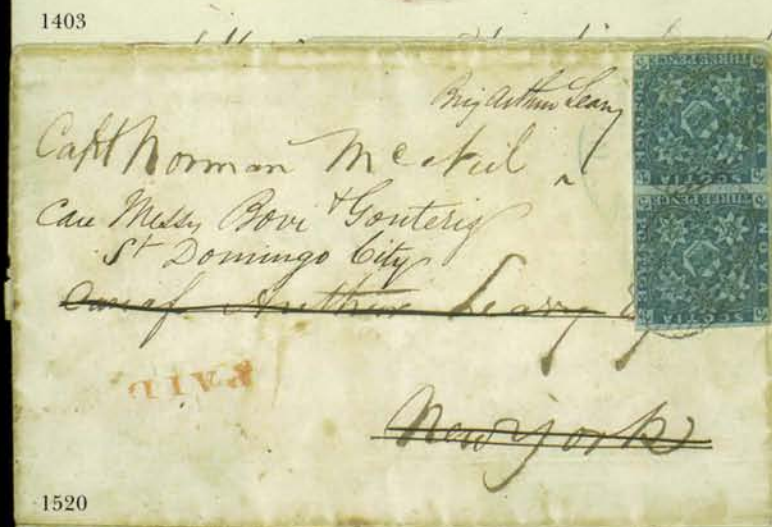 1403
Brig Arthur Leary
Capt Norman McNeil
Care Messrs Bovi & Gonterig
St Domingo City
Care of Arthur Leary Esq
New York
PAID
THREE PENCE
NOVA
SCOTIA
THREE PENCE
NOVA
SCOTIA
1520